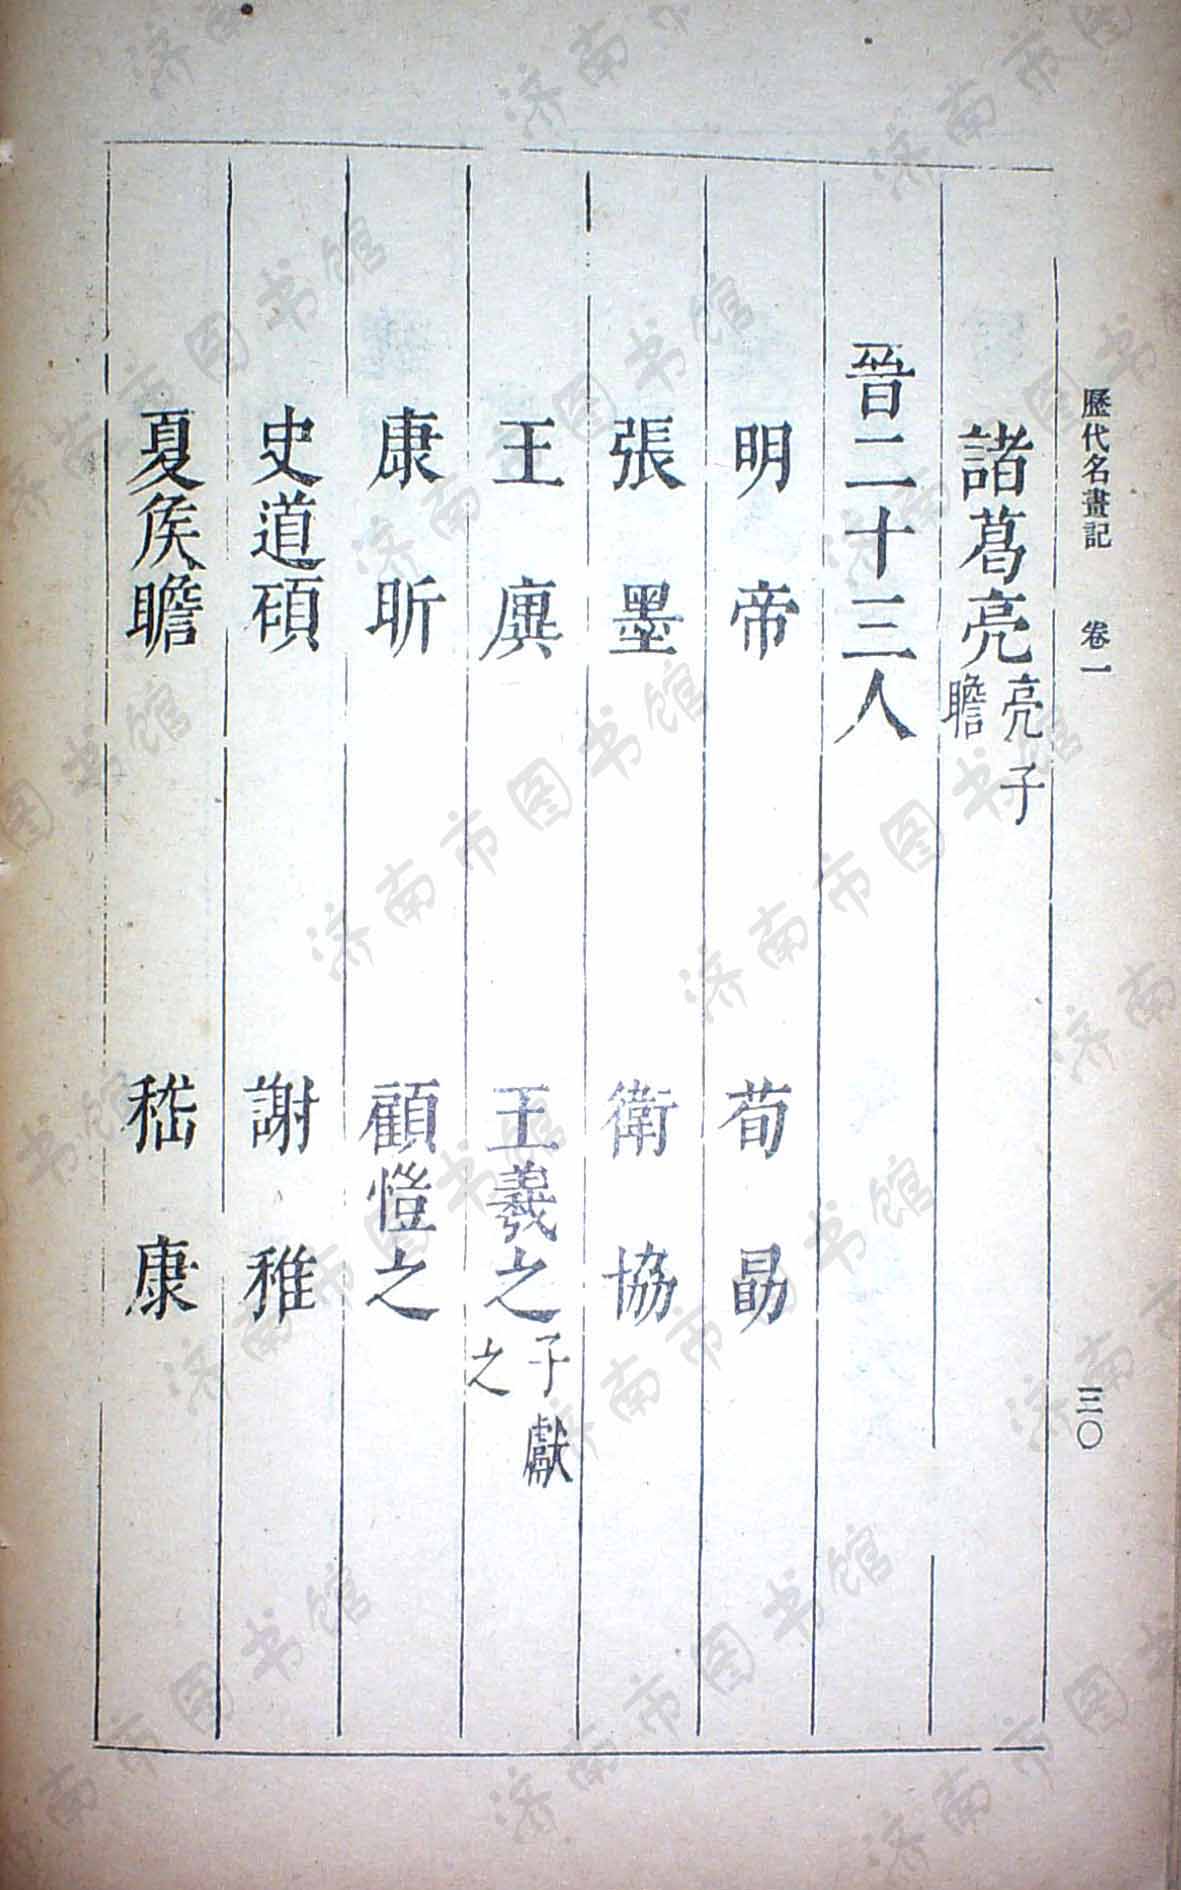 歷代名畫記　卷一　三〇
諸葛亮亮子瞻
晉二十三人
明帝　荀勗
張墨　衛協
王廙　王羲之子獻之
康昕　顧愷之
史道碩　謝稚
夏侯瞻　嵇康
济南市图书馆